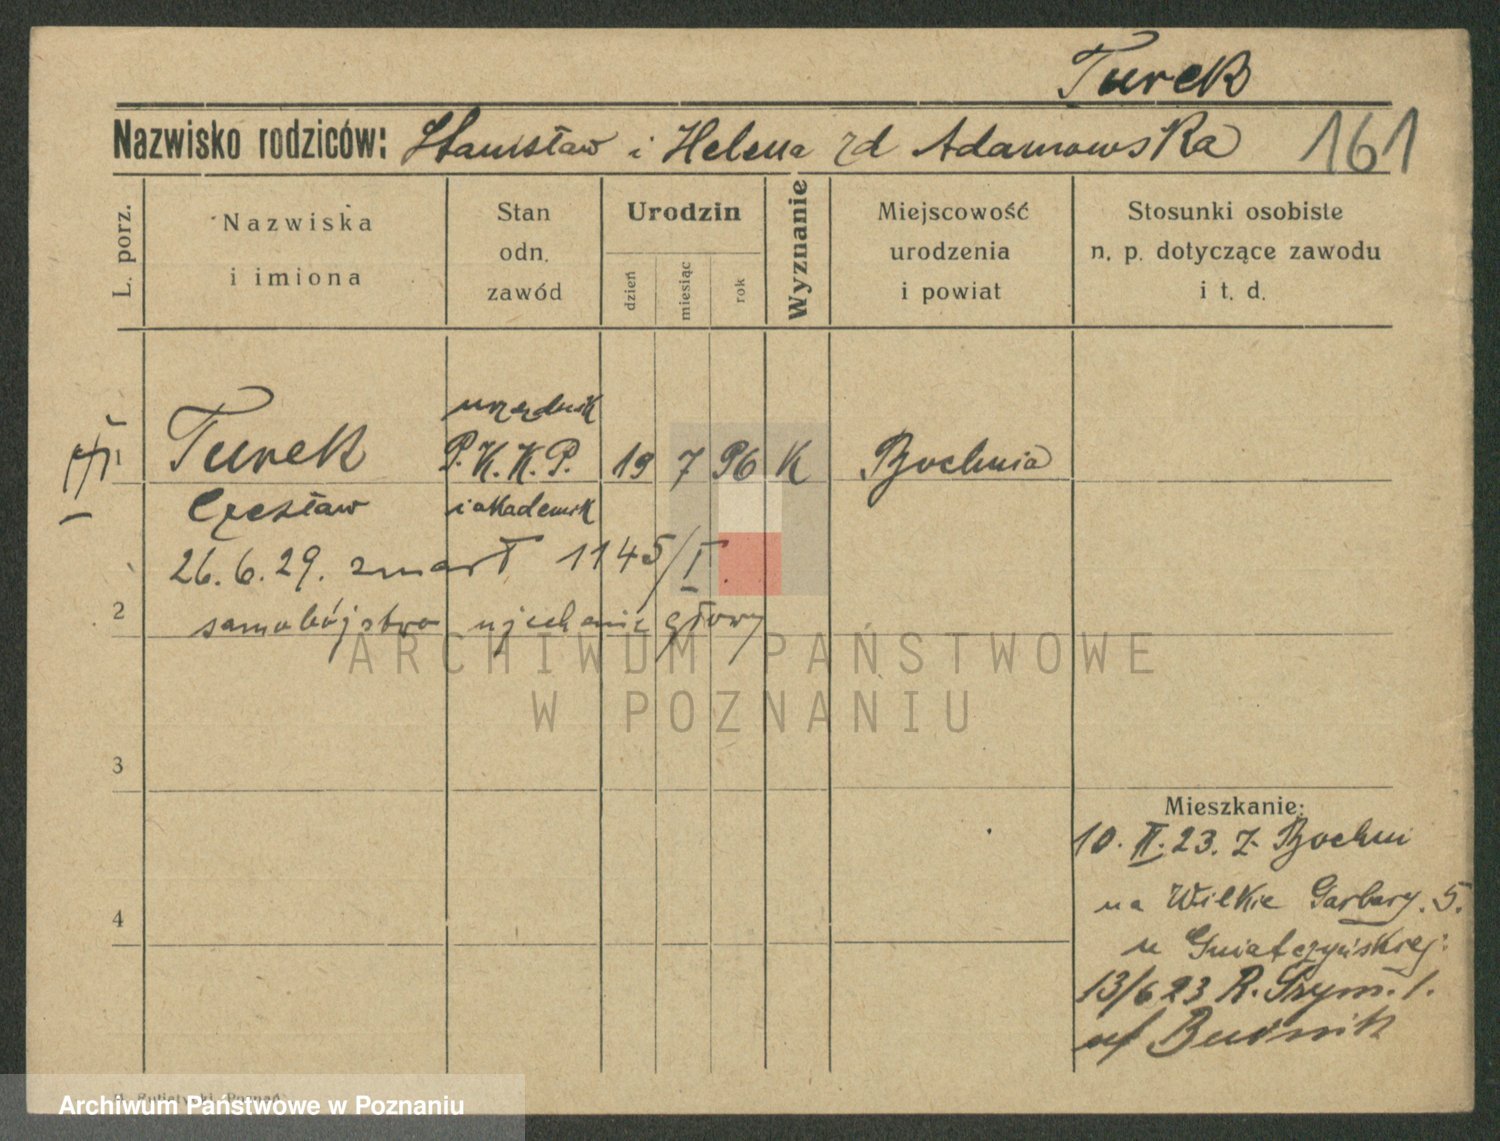 Turek
Nazwisko rodziców: Stanisław i Helena zd Adamowska 161
L. porz.
Nazwiska
i imiona
Stan
odn.
zawód
Urodzin
dzień
miesiąc
rok
Wyznanie
Miejscowość
urodzenia
i powiat
Stosunki osobiste
n. p. dotyczące zawodu
i t. d.
urzędnik
1 Turek P.K.K.P. 19 7 96 K Bochnia
Czesław i akademik
26.6.29. zmarł 1145/I.
2 samobójstwo ujechanie głowy
ARCHIWUM PAŃSTWOWE
W POZNANIU
3
Mieszkanie:
10. II. 23. z Bochni
4 na Wilkie Garbary. 5.
u Gniatczyńskiej:
13/6 23 R. Szym. 1.
u/ Budnik
Archiwum Państwowe w Poznaniu